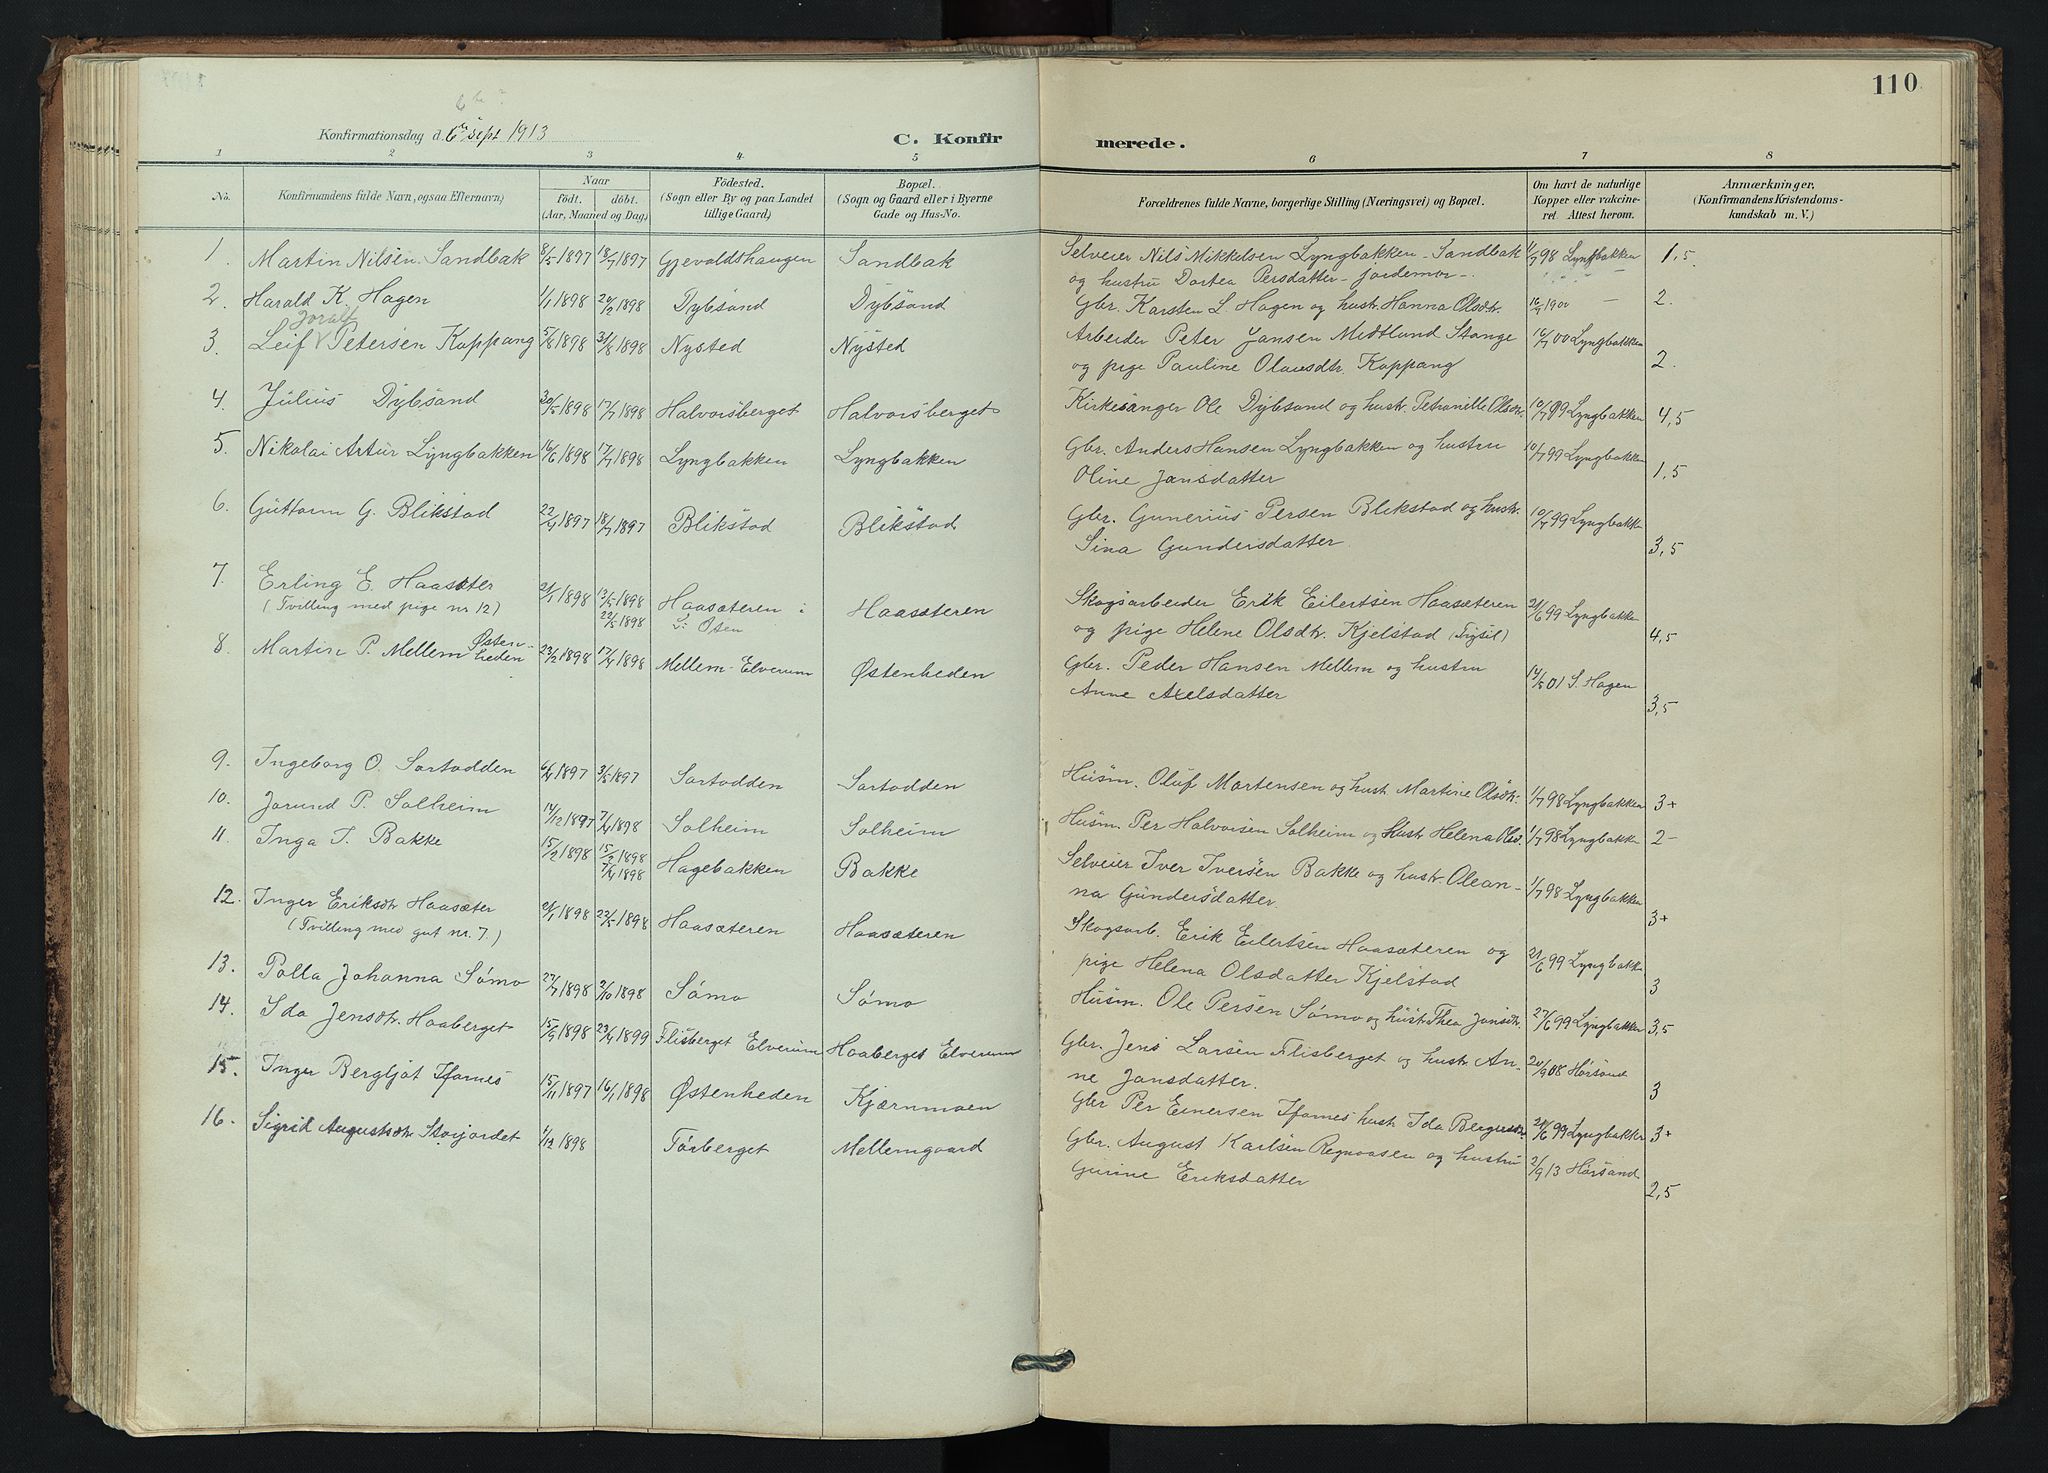 110
Konfirmationsdag d. 6te Sept 1913
C. Konfirmerede.
1 2 3 4 5 6 7 8
No.
Konfirmandens fulde Navn, ogsaa Efternavn)
Naar
födt. döbt.
(Aar, Maaned og Dag)
Födested.
(Sogn eller By og paa Landet
tillige Gaard)
Bopæl.
(Sogn og Gaard eller i Byerne
Gade og Hus-No.
Forældrenes fulde Navne, borgerlige Stilling (Næringsvei) og Bopæl.
Om havt de naturlige
Kopper eller vakcine-
ret. Attest herom.
Anmærkninger,
(Konfirmandens Kristendoms-
kundskab m. V.)
1. Martin Nilsen Sandbak 8/5 1897 18/7 1897 Gjevaldshaugen Sandbak Selveier Nils Mikkelsen Lyngbakken - Sandbak 1/7 98 Lyngbakken 1,5
og hustru Dortea Persdatter - jordemor -.
2. Harald K. Hagen 1/1 1898 20/2 1898 Dybsand Dybsand Gbr. Karsten L. Hagen og hustr. Hanna Olsdtr. 16/7 1900 — 2.
Joralf
3. Leif Petersen Koppang 5/8 1898 31/8 1898 Nysted Nysted Arbeider Peter Jansen Midtlund Stange 16/7 00 Lyngbakken
og pige Pauline Olausdtr. Koppang 2.
4. Julius Dybsand 20/5 1898 17/7 1898 Halvorsberget Halvorsberget Kirkesanger Ole Dybsand og hustr. Petronille Olsdtr. 10/7 99 Lyngbakken 4,5
5. Nikolai Artur Lyngbakken 16/6 1898 17/7 1898 Lyngbakken Lyngbakken Gbr. Anders Hansen Lyngbakken og hustru 10/7 99 Lyngbakken
Oline Jansdatter 1,5
6. Guttorm G. Blikstad 22/4 1897 18/7 1897 Blikstad Blikstad Gbr. Gunerius Persen Blikstad og hustr. 10/7 99 Lyngbakk
Sina Gundersdatter. 3,5
7. Erling E. Haasæter 21/1 1898 13/5 1898 Haasæteren i Haasæteren Skogsarbeider Erik Eilertsen Haasæteren 21/6 99 Lyngbakke
(Tvilling med pige nr 12) 22/5 1898 L: Osen og pige Helene Olsdtr. Kjelstad (Trysil) 4,5
8. Martin P. Mellem Østen-
heden 23/2 1898 17/4 1898 Mellem - Elverum Østenheden Gbr. Peder Hansen Mellem og hustru 14/5 01 S. Hagen
Anne Axelsdatter 3,5
9. Ingeborg O. Sortodden 6/4 1897 3/5 1897 Sortodden Sortodden Husm. Oluf Martensen og hustr. Martine Olsdtr. 1/7 98 Lyngbakken 3+
10. Jorund P. Solheim 14/12 1897 7/4 1898 Solheim Solheim Husm. Per Halvorsen Solheim og hustr. Helena Olsd. 1/7 98 Lyngbakke 2-
11. Inga I. Bakke 15/2 1898 15/2 1898 Hagebakken Bakke Selveier Iver Iversen Bakke og hustr. Olean- 1/7 98 Lyngbakken
7/4 1898 na Gundersdatter. 3+
12. Inger Eriksdtr Haasæter 21/1 1898 22/5 1898 Haasæteren Haasæteren Skogsarb. Erik Eilertsen Haasæteren og 21/6 99 Lyngbakke
(Tvilling med gut nr. 7.) pige Helena Olsdatter Kjelstad 3
13. Polla Johanna Sømo 27/7 1898 2/10 1898 Sømo Sømo Husm. Ole Persen Sømo og hustr. Thea Jonsdtr. 27/6 99 Lyngbakken 3,5
14. Ida Jensdtr. Haaberget 15/9 1898 23/4 1899 Flisberget Elverum Haaberget Elverum Gbr. Jens Larsen Flisberget og hustr. An- 20/9 08 Hørsand
ne Jansdatter. 3
15. Inger Bergljot Ifarnes 15/11 1897 16/1 1898 Østenheden Kjærnmoen Gbr Per Einersen Ifarnes hustr. Ida 21/6 99 Lyngbakken 3+
16. Sigrid Augustsdtr. Storjordet 1/12 1898 Tørberget Mellemgaard Gbr. August Karlsen og hustru 2/9 13 Hørsand
Gurine Eriksdatter 2,5